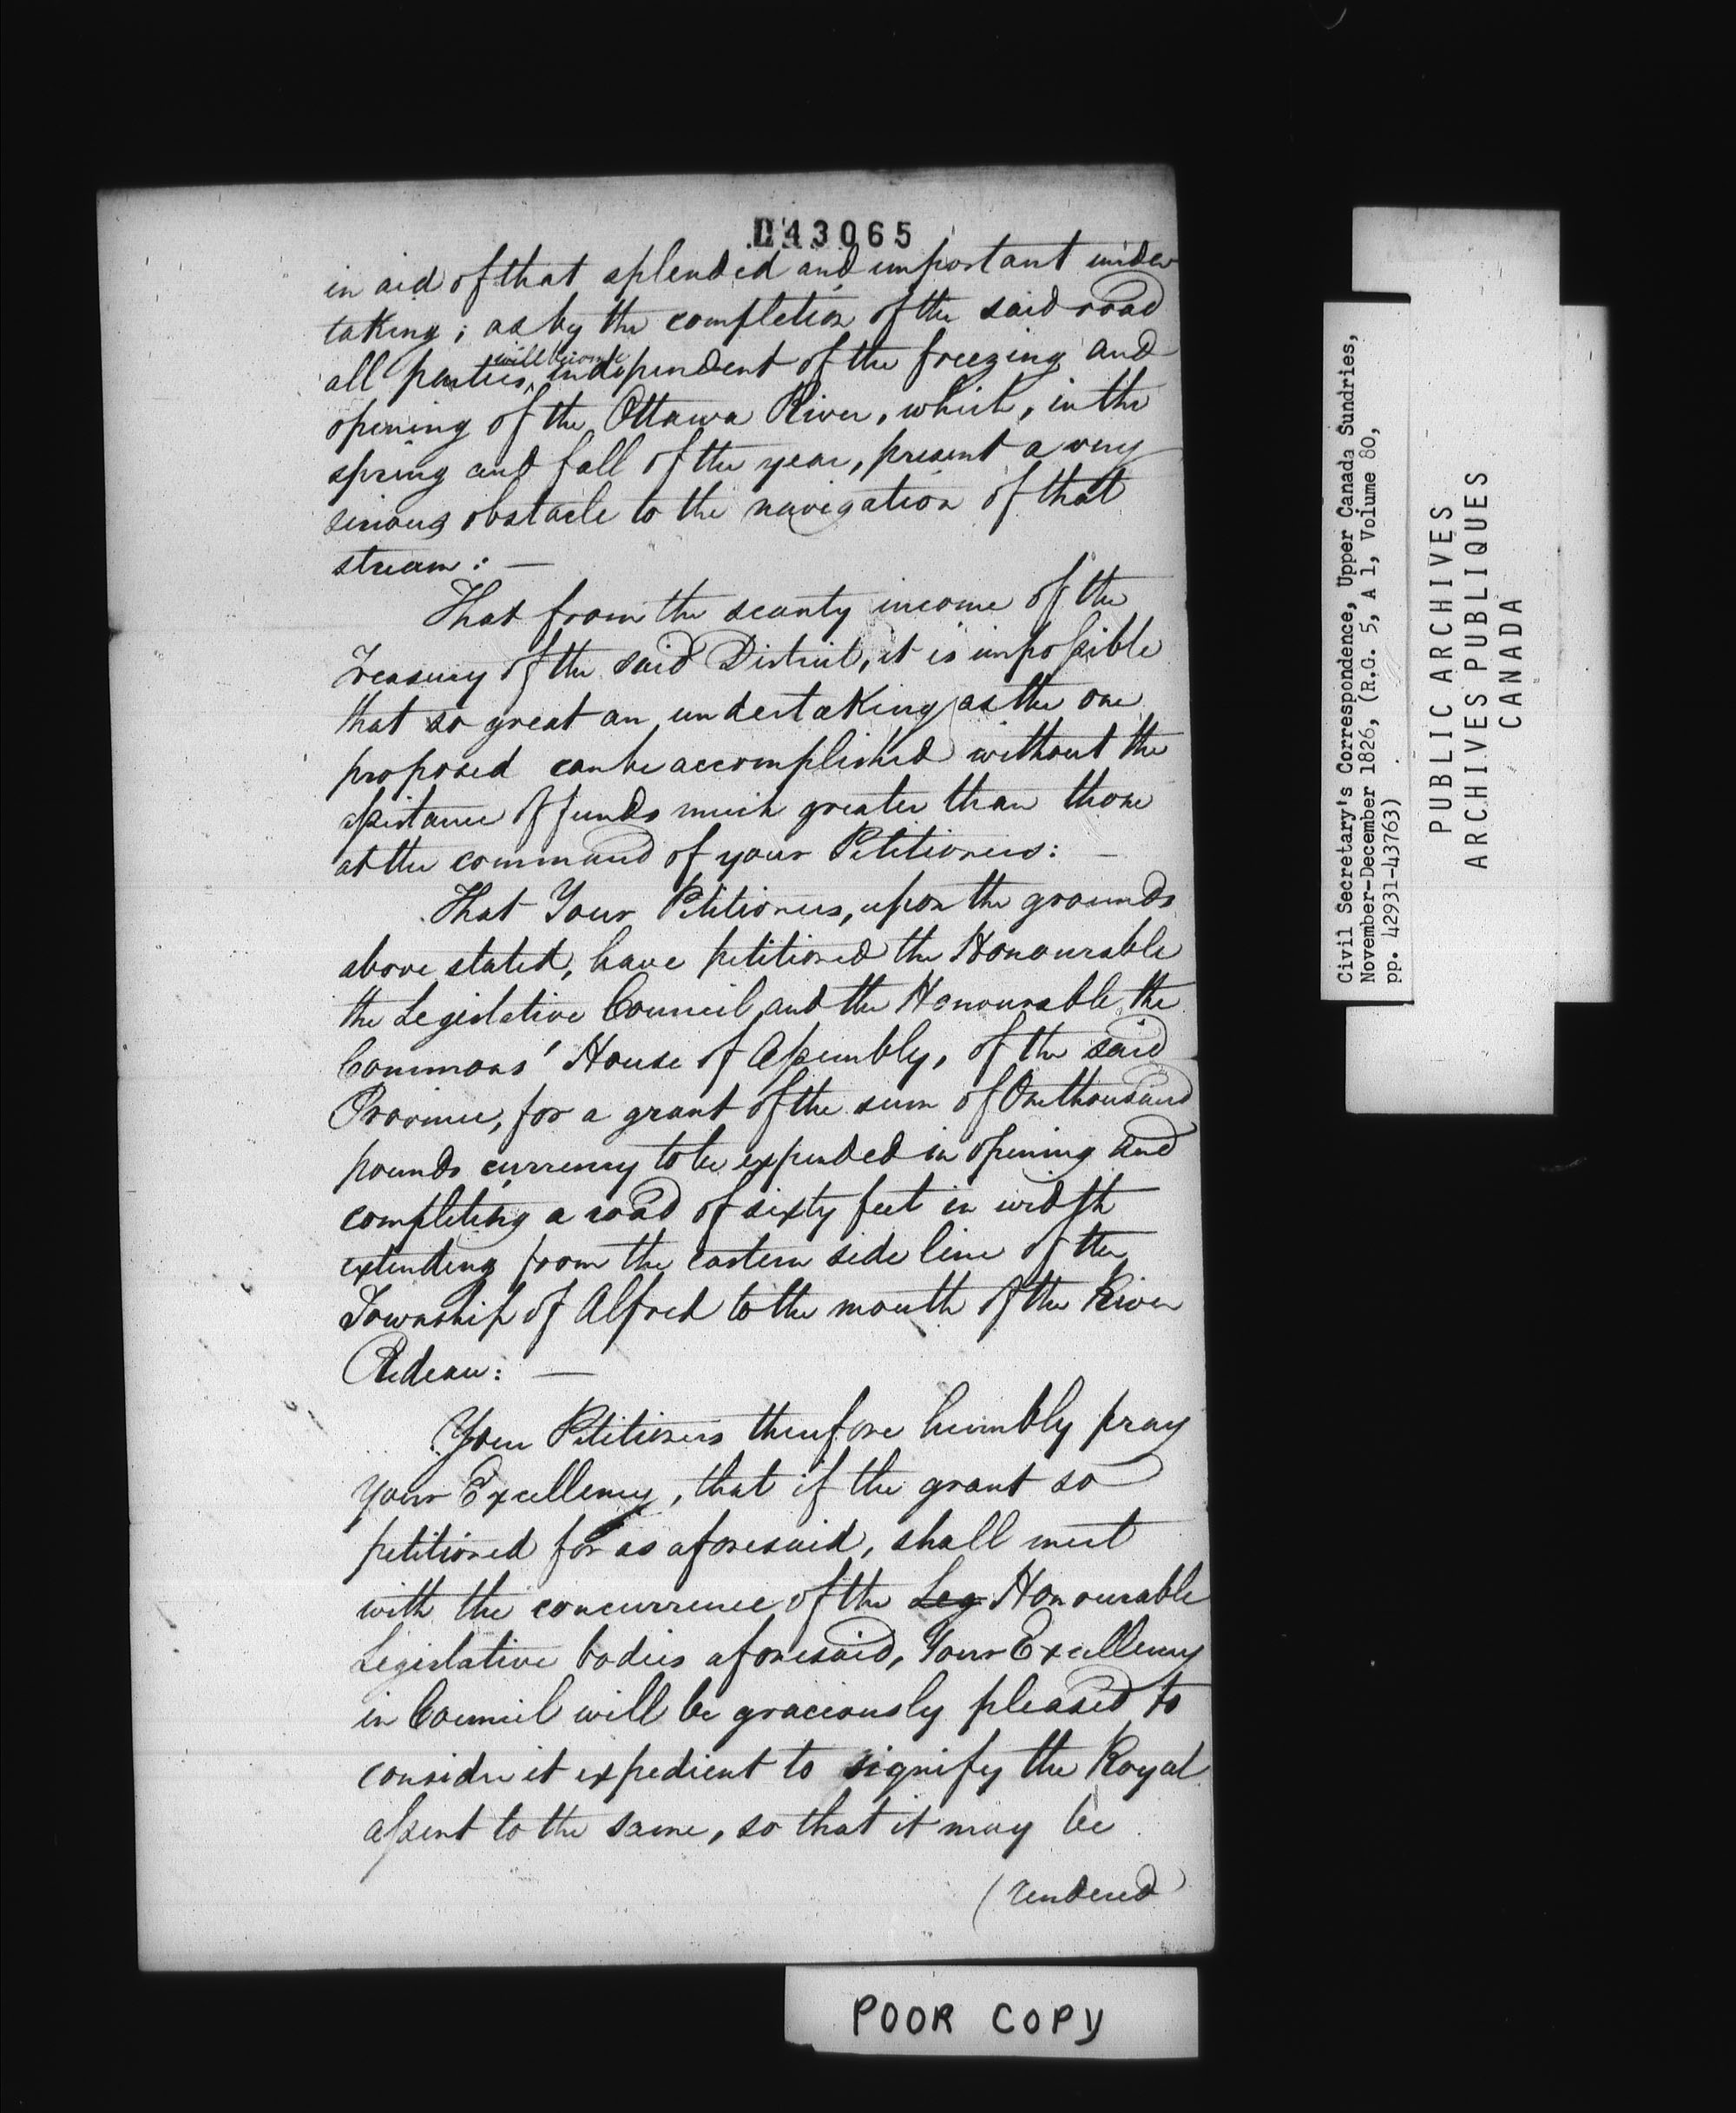 043065
in aid of that splended and important under
taking; as by the completion of the said road
all parties, will become independent of the freezing and
opening of the Ottawa River, which, in the
spring and fall of the year, present a very
serious obstacle to the navigation of that
stream: —
That from the scanty income of the
Treasury of the said District, it is impossible
that so great an undertaking as the one
proposed can be accomplished without the
assistance of funds much greater than those
at the command of your Petitioners: —
That Your Petitioners, upon the grounds
above stated, have petitioned the Honourable
the Legislative Council and the Honourable the
Commons' House of Assembly, of the said
Province, for a grant of the sum of One thousand
pounds currency to be expended in opening and
completing a road of sixty feet in width
extending from the eastern side line of the
Township of Alfred to the mouth of the River
Rideau: —
Your Petitioners therefore humbly pray
your Excellency, that if the grant so
petitioned for as aforesaid, shall meet
with the concurrence of the Leg Honourable
Legislative bodies aforesaid, Your Excellency
in Council will be graciously pleased to
consider it expedient to signify the Royal
assent to the same, so that it may be
(rendered
POOR COPY
Civil Secretary's Correspondence, Upper Canada Sundries,
November-December 1826, (R.G. 5, A 1, Volume 80,
pp. 42931-43763)
PUBLIC ARCHIVES
ARCHIVES PUBLIQUES
CANADA